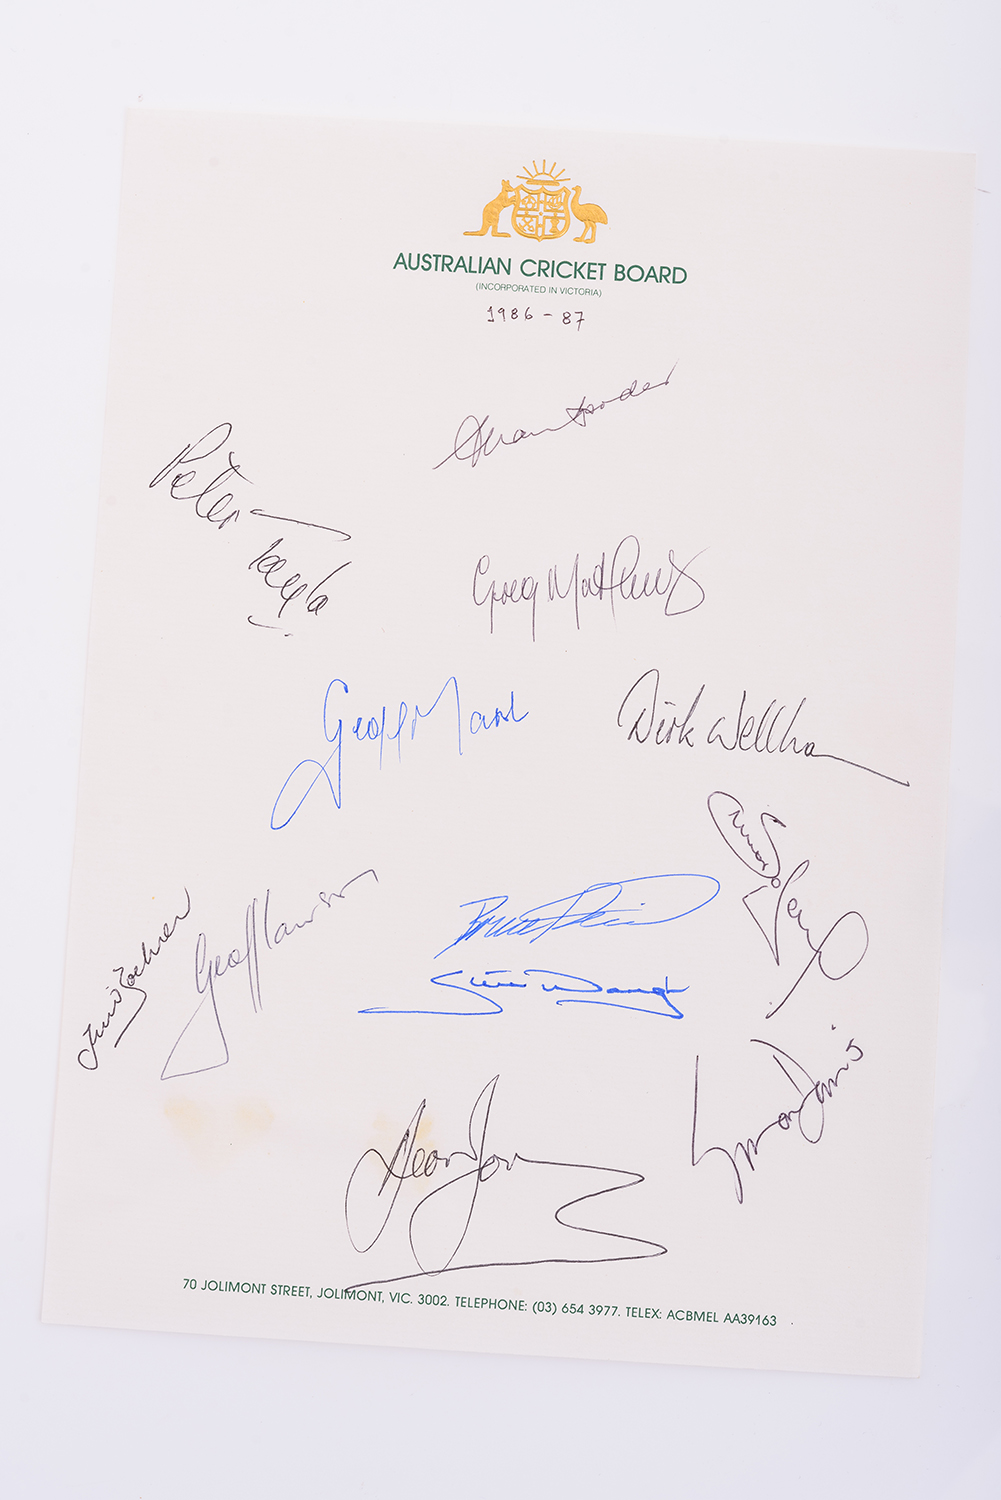 AUSTRALIAN CRICKET BOARD
(INCORPORATED IN VICTORIA)
1986 - 87
Allan Border
Peter Taylor
Greg Matthews
Geoff Marsh
Dirk Wellham
Geoff Lawson
Bruce Reid
Steve Waugh
Tim Zoehrer
Simon Davis
Dean Jones
70 JOLIMONT STREET, JOLIMONT, VIC. 3002. TELEPHONE: (03) 654 3977. TELEX: ACBMEL AA39163